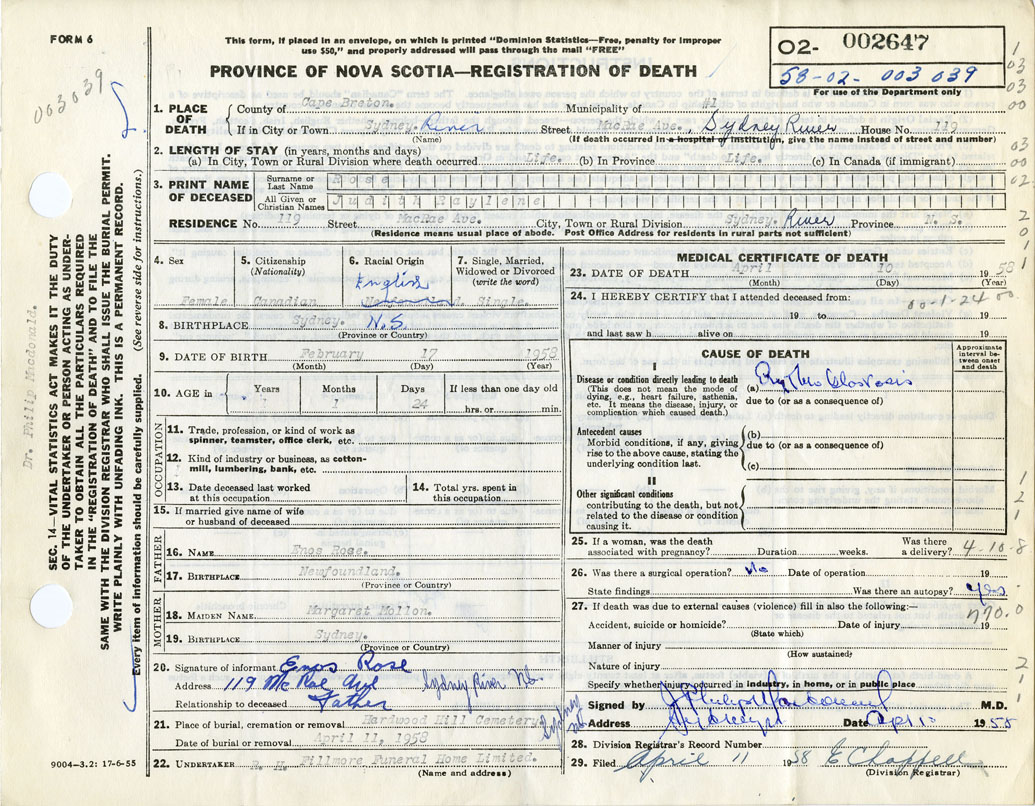 FORM 6
003039
This form, if placed in an envelope, on which is printed "Dominion Statistics—Free, penalty for improper
use $50," and properly addressed will pass through the mail "FREE"
PROVINCE OF NOVA SCOTIA—REGISTRATION OF DEATH
02- 002647
58-02-003039
For use of the Department only
1. PLACE OF DEATH { County of Cape Breton. Municipality of #1
If in City or Town Sydney. River Street MacRae Ave., Sydney River House No. 119
(Name) (If death occurred in a hospital or institution, give the name instead of street and number)
2. LENGTH OF STAY (in years, months and days)
(a) In City, Town or Rural Division where death occurred Life. (b) In Province Life. (c) In Canada (if immigrant)
3. PRINT NAME OF DECEASED { Surname or Last Name Rose
All Given or Christian Names Judith Raylene
RESIDENCE No. 119 Street MacRae Ave. City, Town or Rural Division Sydney. River Province N. S.
(Residence means usual place of abode. Post Office Address for residents in rural parts not sufficient)
4. Sex Female
5. Citizenship (Nationality) Canadian
6. Racial Origin English
7. Single, Married, Widowed or Divorced (write the word) Single.
8. BIRTHPLACE Sydney. N.S.
(Province or Country)
9. DATE OF BIRTH February 17 1958
(Month) (Day) (Year)
10. AGE in Years Months 1 Days 24 If less than one day old hrs. or min.
OCCUPATION
11. Trade, profession, or kind of work as
spinner, teamster, office clerk, etc.
12. Kind of industry or business, as cotton-
mill, lumbering, bank, etc.
13. Date deceased last worked at this occupation
14. Total yrs. spent in this occupation
15. If married give name of wife
or husband of deceased
FATHER
16. NAME Enos Rose.
17. BIRTHPLACE Newfoundland.
(Province or Country)
MOTHER
18. MAIDEN NAME Margaret Mollon.
19. BIRTHPLACE Sydney.
(Province or Country)
20. Signature of informant Enos Rose
Address 119 McRae Ave Sydney River N.S.
Relationship to deceased Father
21. Place of burial, cremation or removal Hardwood Hill Cemetery Sydney N.S.
Date of burial or removal April 11, 1958
22. UNDERTAKER R. H. Fillmore Funeral Home Limited.
(Name and address)
9004—3.2: 17-6-55
MEDICAL CERTIFICATE OF DEATH
23. DATE OF DEATH April 10 1958
(Month) (Day) (Year)
24. I HEREBY CERTIFY that I attended deceased from: 00-1-24 00
19 to 19
and last saw h alive on 19
CAUSE OF DEATH
Approximate interval between onset and death
I
Disease or condition directly leading to death
(This does not mean the mode of
dying, e.g., heart failure, asthenia,
etc. It means the disease, injury, or
complication which caused death.)
(a)
due to (or as a consequence of)
Antecedent causes
Morbid conditions, if any, giving
rise to the above cause, stating the
underlying condition last.
(b)
due to (or as a consequence of)
(c)
II
Other significant conditions
contributing to the death, but not
related to the disease or condition
causing it.
25. If a woman, was the death
associated with pregnancy? Duration weeks. Was there a delivery? 4-10-8
26. Was there a surgical operation? No Date of operation 19
State findings Was there an autopsy? yes
27. If death was due to external causes (violence) fill in also the following:— 770.0
Accident, suicide or homicide? Date of injury 19
(State which)
Manner of injury
(How sustained)
Nature of injury
Specify whether injury occurred in industry, in home, or in public place
Signed by M.D.
Address Sydney Date Apl 10 1958
28. Division Registrar's Record Number
29. Filed April 11 1958 E Chappell
(Division Registrar)
Dr. Philip Macdonald.
SEC. 14—VITAL STATISTICS ACT MAKES IT THE DUTY
OF THE UNDERTAKER OR PERSON ACTING AS UNDER-
TAKER TO OBTAIN ALL THE PARTICULARS REQUIRED
IN THE "REGISTRATION OF DEATH" AND TO FILE THE
SAME WITH THE DIVISION REGISTRAR WHO SHALL ISSUE THE BURIAL PERMIT.
WRITE PLAINLY WITH UNFADING INK. THIS IS A PERMANENT RECORD.
Every item of information should be carefully supplied. (See reverse side for instructions.)